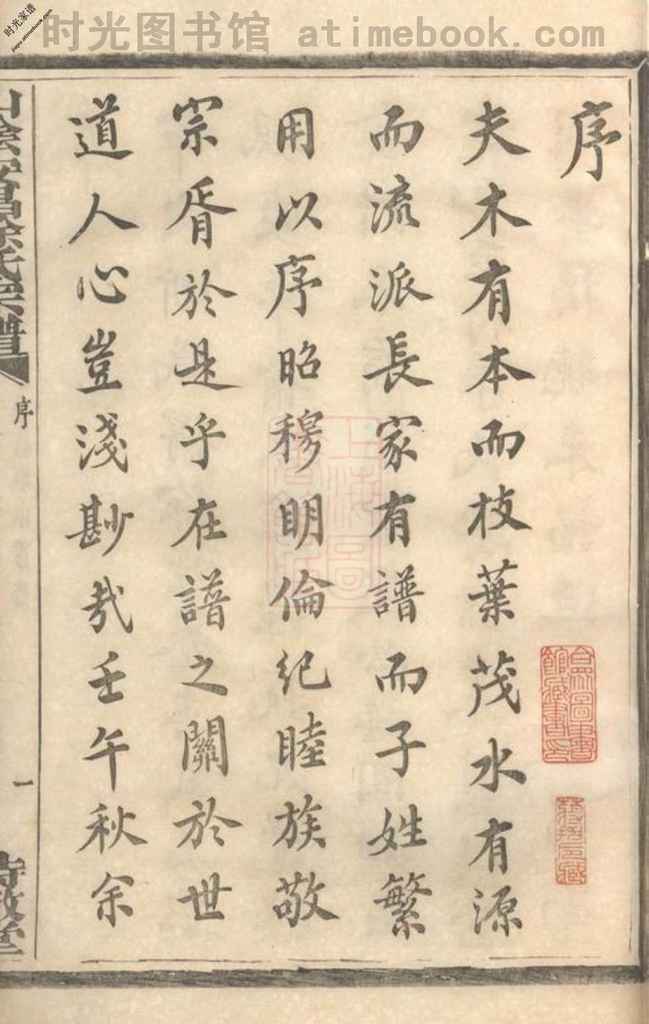 时光图书馆 atimebook.com
时光家谱
www.atimebook.com
序
夫木有本而枝葉茂水有源
而流派長家有譜而子姓繁
用以序昭穆明倫紀睦族敬
宗胥於是乎在譜之關於世
道人心豈淺尠哉壬午秋余
山陰安昌徐氏宗譜
序
一